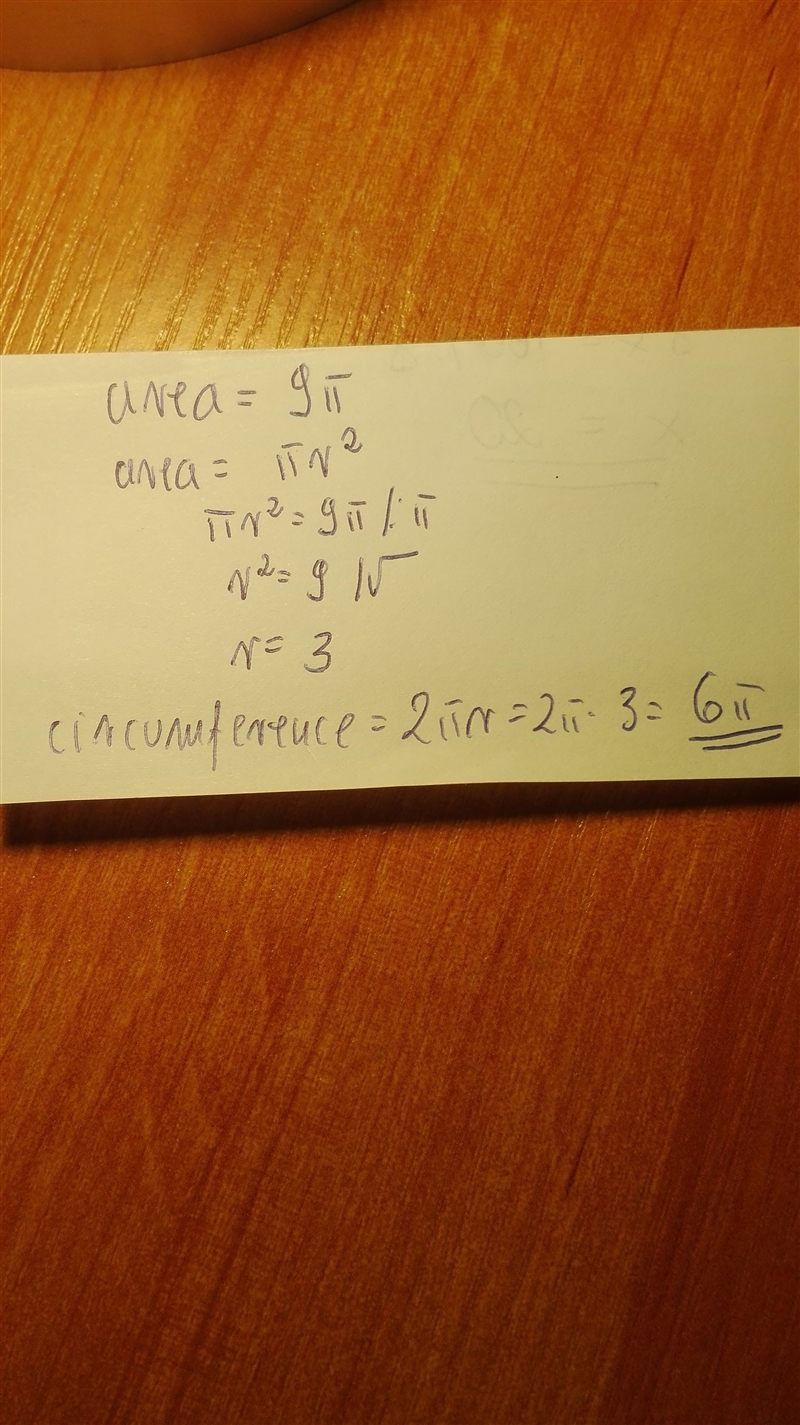 area = 9π
area = πr²
πr² = 9π /: π
r² = 9 /√
r = 3
circumference = 2πr = 2π · 3 = 6π
x = 20